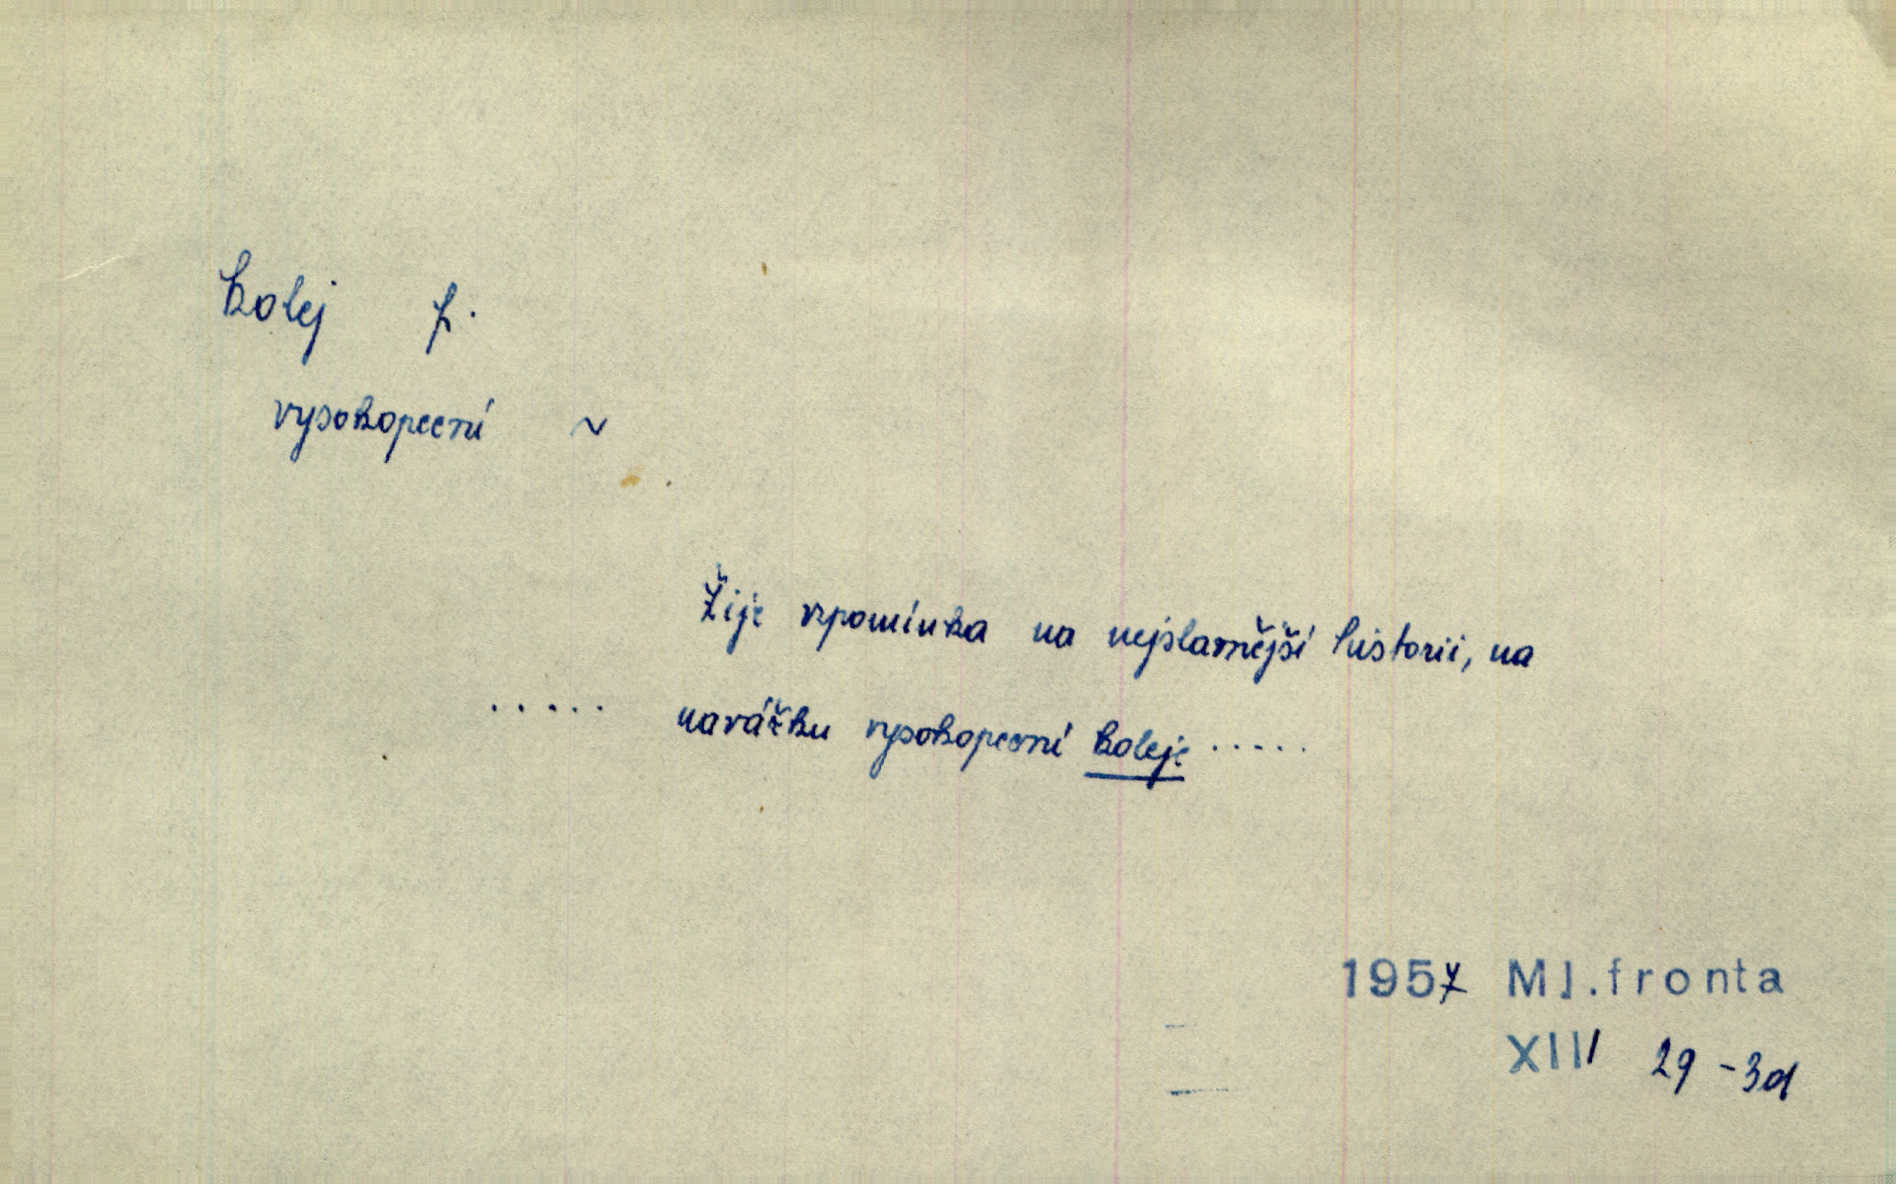 kolej f.
vysokopecní ~
Žije vzpomínka na nejslavnější historii, na
..... navážku vysokopecní koleje .....
1957 Ml.fronta
XIII 29 -3d